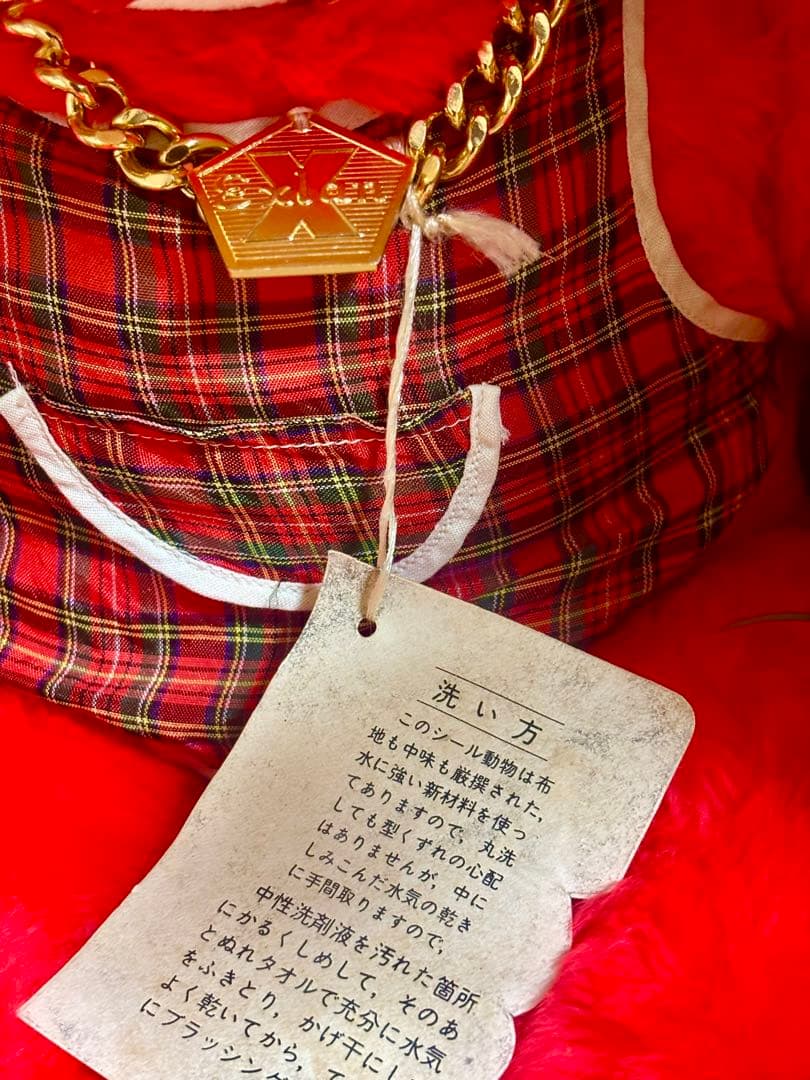 Exlan
X
洗い方
このシール動物は布
地も中味も厳撰された,
水に強い新材料を使っ
てありますので, 丸洗
しても型くずれの心配
はありませんが, 中に
しみこんだ水気の乾き
に手間取りますので,
中性洗剤液を汚れた箇所
にかるくしめして, そのあ
とぬれタオルで充分に水気
をふきとり, かげ干にし
よく乾いてから, て
にブラッシング